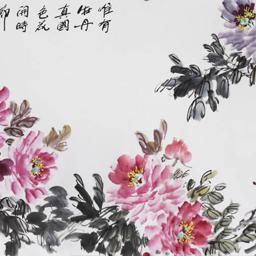 唯有
牡丹
真國
色花
開時